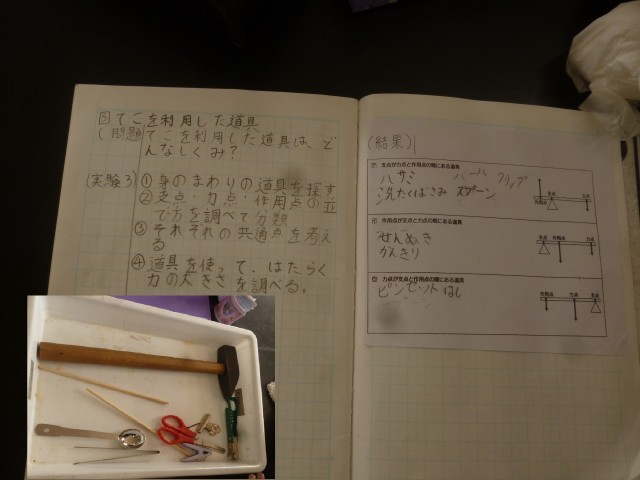 ⑤てこを利用した道具
(問題)てこを利用した道具は、ど
んなしくみ?
(実験3)①身のまわりの道具を探す
②支点・力点・作用点の並
び方を調べて分類
③それぞれの共通点を考え
る
④道具を使って、はたらく
力の大きさを調べる。
(結果)
㋐ 支点が力点と作用点の間にある道具
ハサミ バール クリップ
洗たくばさみ スプーン
作用点 支点 力点
㋑ 作用点が支点と力点の間にある道具
せんぬき
かんきり
支点 作用点 力点
㋒ 力点が支点と作用点の間にある道具
ピンセット はし
作用点 力点 支点